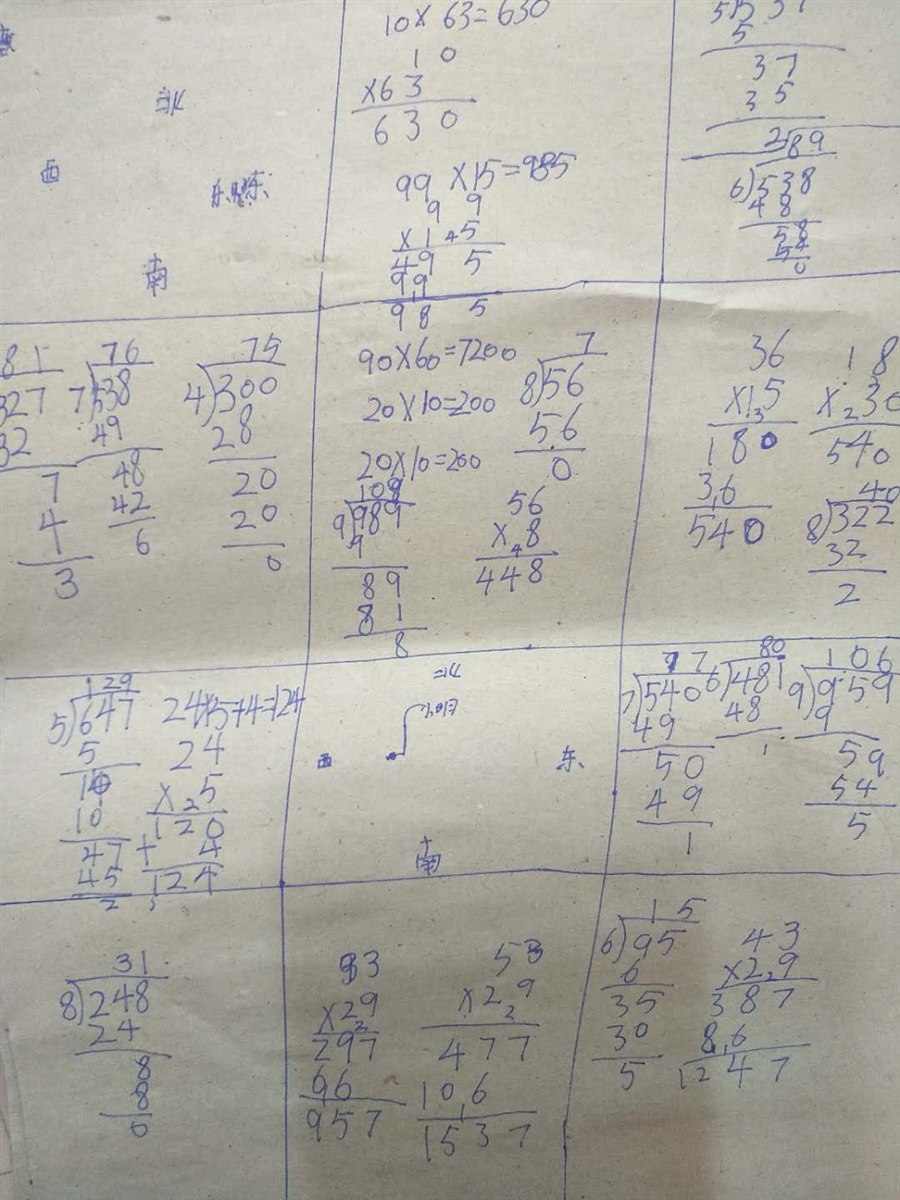 北
西
东
南
10×63=630
1 0
×6 3
6 3 0
99×15=985
9 9
×1 4 5
4 9 5
9 9
9 8 5
3 7
3 5
2 8 9
6)538
4 8
5 8
5 4
0
81
327
32
7
4
3
76
7)538
49
48
42
6
75
4)300
28
20
20
0
90×60=7200
20×10=200
20×10=200
7
8)56
56
0
109
9)989
9
89
81
8
56
×48
448
36
×135
180
36
540
18
×230
540
40
8)322
32
2
129
5)647
5
10
47
45
2
24×5+4=124
24
×25
120
+ 4
124
北
西
东
南
77
7)540
49
50
49
1
80
6)481
48
1
106
9)959
9
59
54
5
31
8)248
24
8
8
0
33
×29
2
297
66
957
53
×229
477
106
1537
15
6)95
6
35
30
5
43
×229
387
86
1247